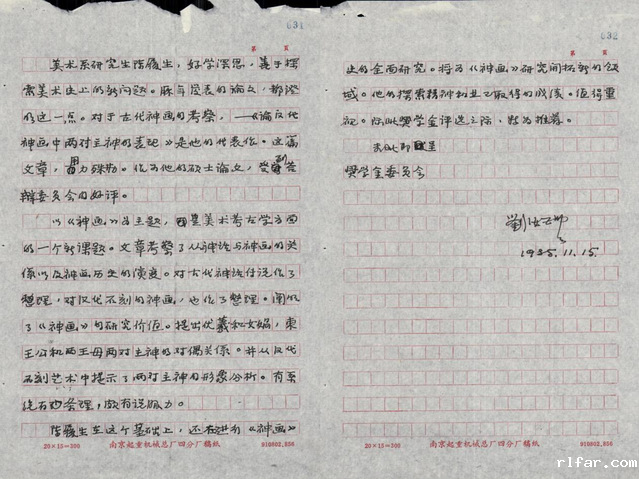 631
第 页
美术系研究生陈履生,好学深思,善于探
索美术史上的新问题。历年发表的论文,都证
明这一点。对于古代神画的考察,——《论汉代
神画中两对主神的表现》是他的代表作。这篇
文章,用力殊勤。作为他的硕士论文,受到答
辩委员会的好评。
以《神画》为主题,是美术考古学方面
的一个新课题。文章考察了从神话与神画的关
系以及神画历史的演变。对古代神话传说作了
整理,对汉代石刻的神画,也作了整理。阐明
了《神画》的研究价值。提出伏羲和女娲,东
王公和西王母两对主神的对偶关系。并从汉代
石刻艺术中提示了两对主神的形象分析。有系
统有条理,颇有说服力。
陈履生在这个基础上,还在进行《神画》
20×15=300 南京起重机械总厂四分厂稿纸 910802.856
632
第 页
史的全面研究。将为《神画》研究开拓新的领
域。他的探索精神和业已取得的成绩。值得重
视。际此奖学金评选之际,特为推荐。
此呈
奖学金委员会
刘汝醴
1985.11.15.
20×15=300 南京起重机械总厂四分厂稿纸 910802.856
rlfar.com